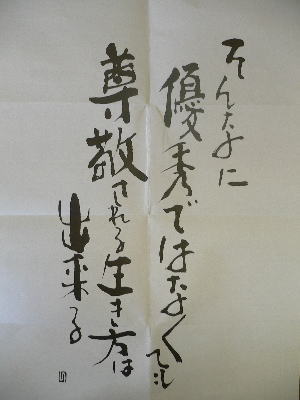 そんなに
優秀ではなくても
尊敬される生き方は
出来る